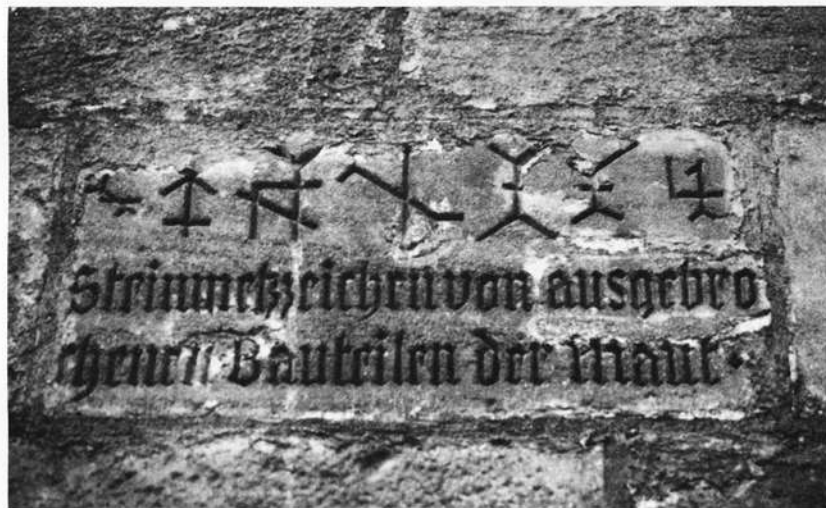 Steinmetzzeichen von ausgebro
chenen Bauteilen der Maut.